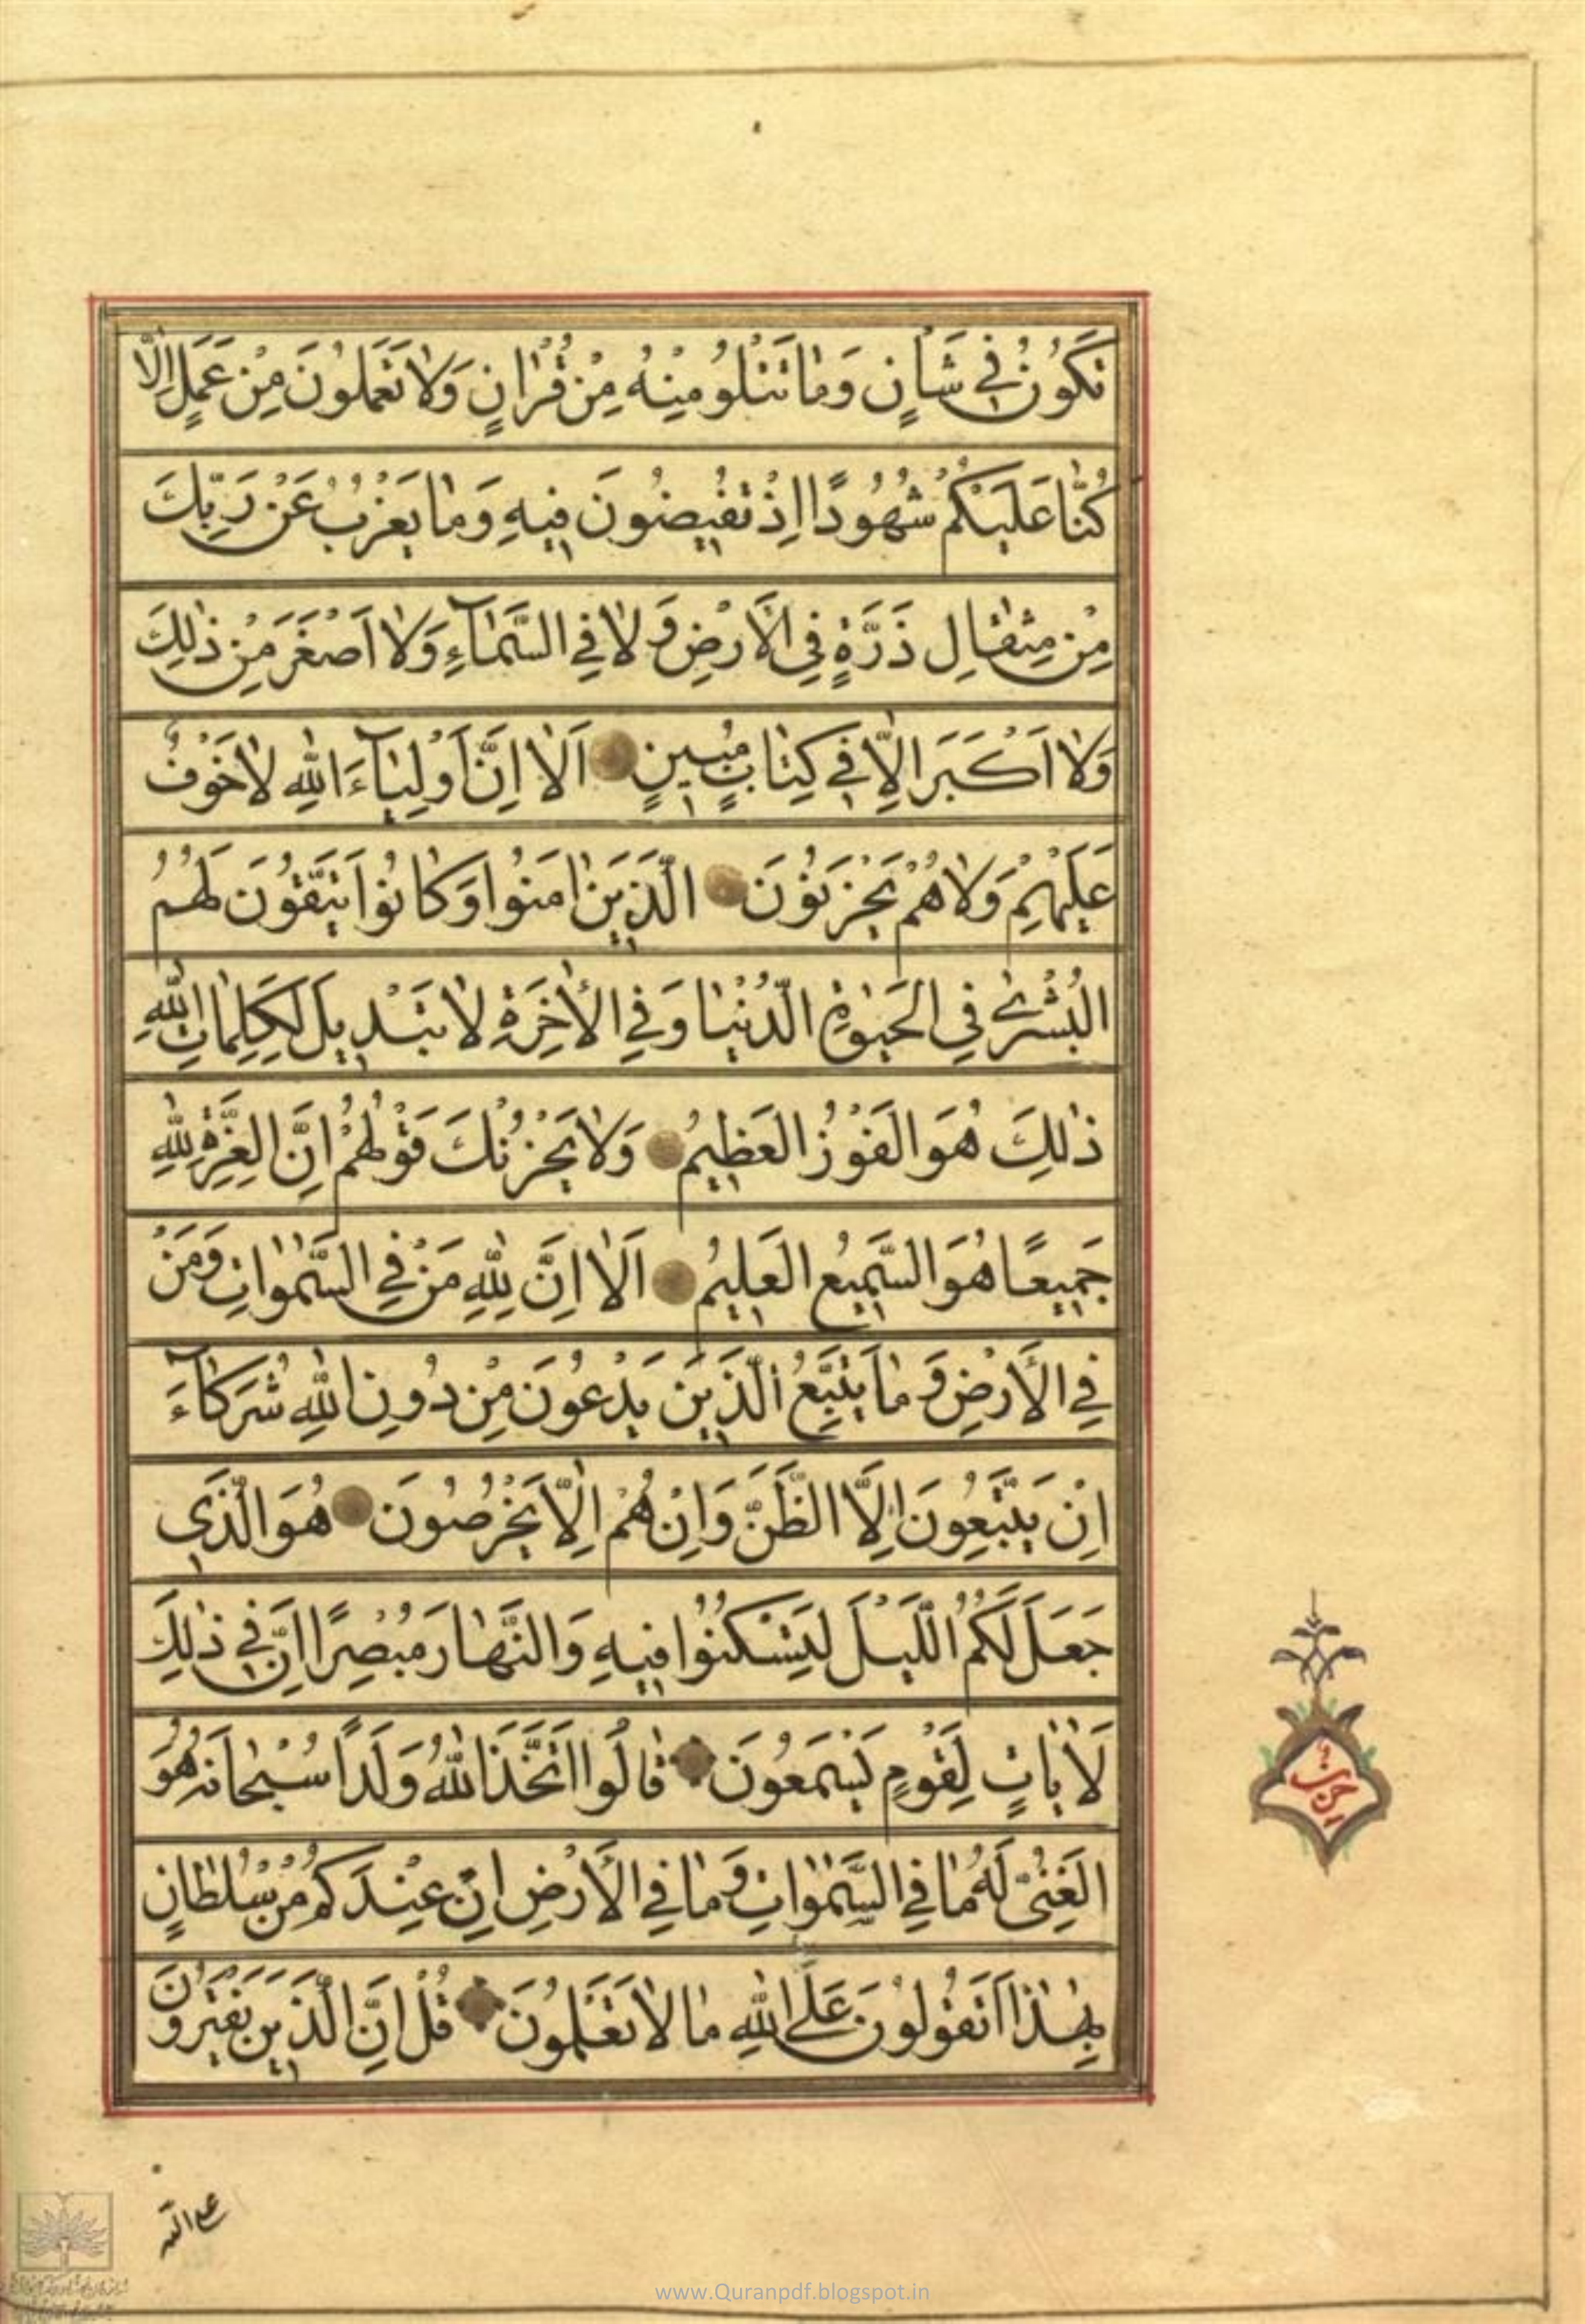 تَكُونُ فِي شَأْنٍ وَمٰا تَتْلُو مِنْهُ مِنْ قُرْاٰنٍ وَلاٰ تَعْمَلُونَ مِنْ عَمَلٍ اِلّٰا
كُنّٰا عَلَيْكُمْ شُهُودًا اِذْ تُفِيضُونَ فِيهِ وَمٰا يَعْزُبُ عَنْ رَبِّكَ
مِنْ مِثْقٰالِ ذَرَّةٍ فِي الْاَرْضِ وَلاٰ فِي السَّمٰآءِ وَلاٰ اَصْغَرَ مِنْ ذٰلِكَ
وَلاٰ اَكْبَرَ اِلّٰا فِي كِتٰابٍ مُبِينٍ اَلاٰ اِنَّ اَوْلِيٰآءَ اللّٰهِ لاٰ خَوْفٌ
عَلَيْهِمْ وَلاٰ هُمْ يَحْزَنُونَ الَّذِينَ اٰمَنُوا وَكٰانُوا يَتَّقُونَ لَهُمُ
الْبُشْرىٰ فِي الْحَيٰوةِ الدُّنْيٰا وَفِي الْاٰخِرَةِ لاٰ تَبْدِيلَ لِكَلِمٰاتِ اللّٰهِ
ذٰلِكَ هُوَ الْفَوْزُ الْعَظِيمُ وَلاٰ يَحْزُنْكَ قَوْلُهُمْ اِنَّ الْعِزَّةَ لِلّٰهِ
جَمِيعًا هُوَ السَّمِيعُ الْعَلِيمُ اَلاٰ اِنَّ لِلّٰهِ مَنْ فِي السَّمٰوٰاتِ وَمَنْ
فِي الْاَرْضِ وَمٰا يَتَّبِعُ الَّذِينَ يَدْعُونَ مِنْ دُونِ اللّٰهِ شُرَكٰآءَ
اِنْ يَتَّبِعُونَ اِلَّا الظَّنَّ وَاِنْ هُمْ اِلّٰا يَخْرُصُونَ هُوَ الَّذِي
جَعَلَ لَكُمُ اللَّيْلَ لِتَسْكُنُوا فِيهِ وَالنَّهٰارَ مُبْصِرًا اِنَّ فِي ذٰلِكَ
لَاٰيٰاتٍ لِقَوْمٍ يَسْمَعُونَ قٰالُوا اتَّخَذَ اللّٰهُ وَلَدًا سُبْحٰانَهُ هُوَ
الْغَنِيُّ لَهُ مٰا فِي السَّمٰوٰاتِ وَمٰا فِي الْاَرْضِ اِنْ عِنْدَكُمْ مِنْ سُلْطٰانٍ
بِهٰذٰا اَتَقُولُونَ عَلَى اللّٰهِ مٰا لاٰ تَعْلَمُونَ قُلْ اِنَّ الَّذِينَ يَفْتَرُونَ
حزب
على الله
www.Quranpdf.blogspot.in